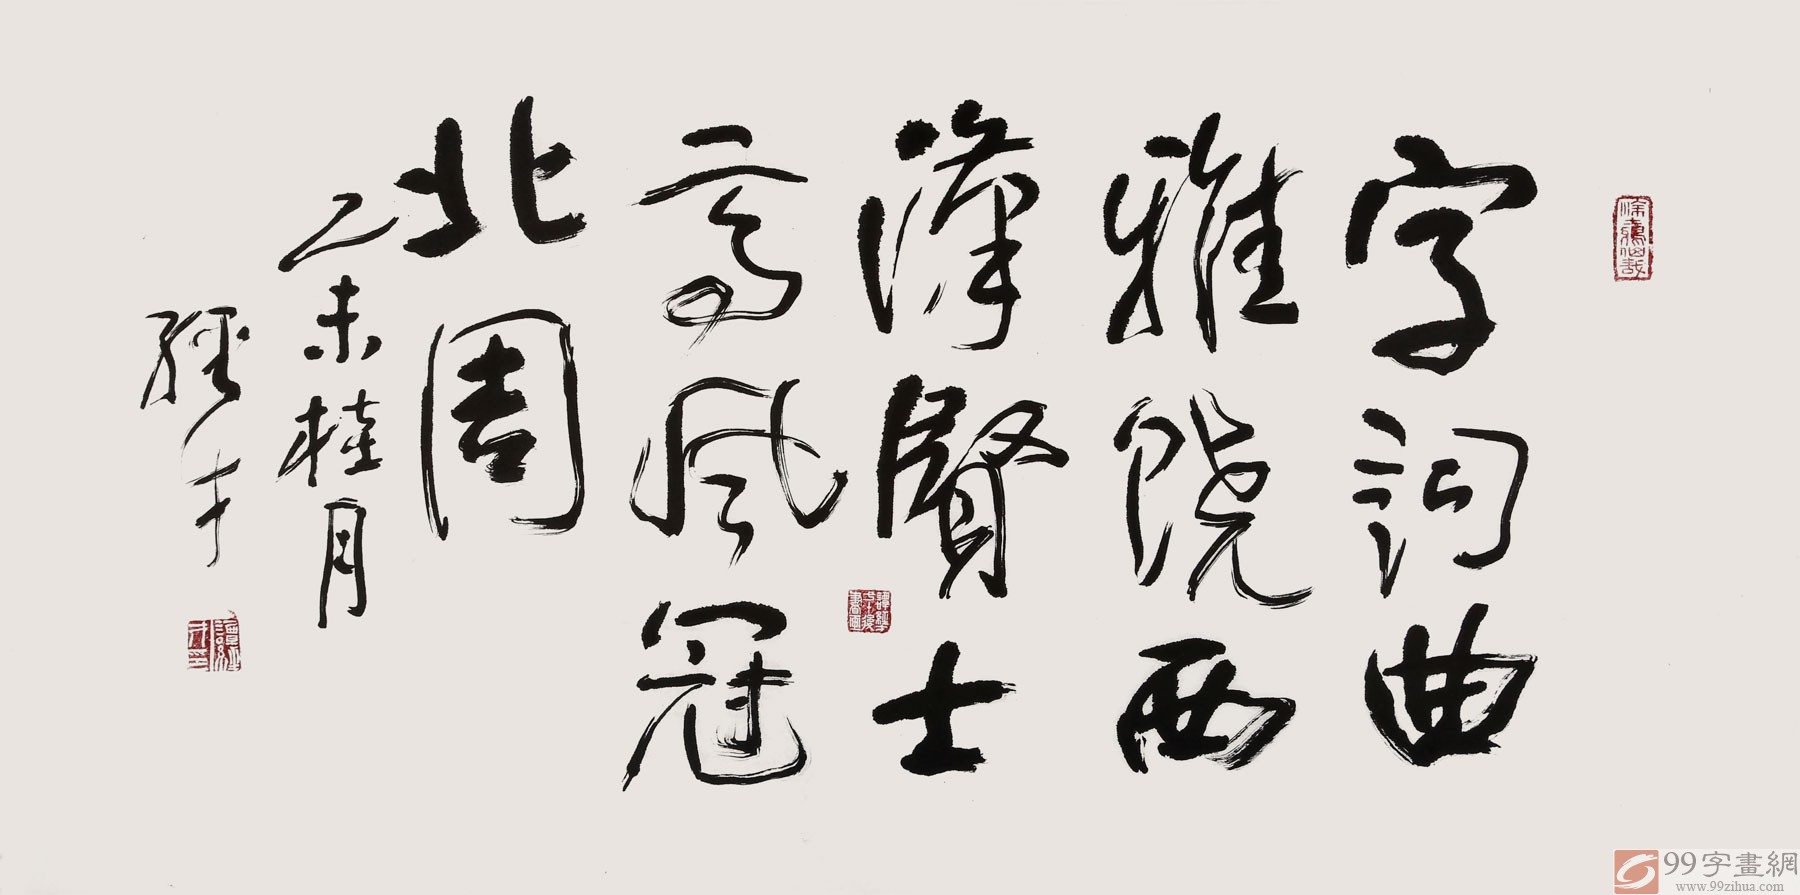 字词曲
雅饶西
漢賢士
高风冠
北周
乙未桂月
經才
99字畫網
www.99zihua.com